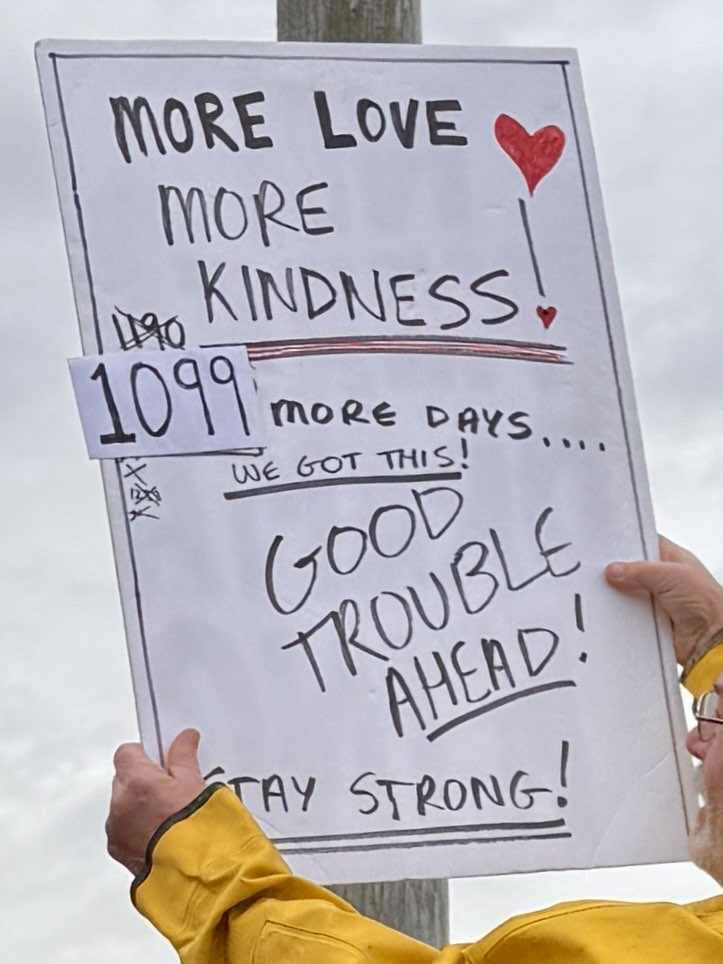 MORE LOVE
MORE
KINDNESS!
1099 MORE DAYS....
WE GOT THIS!
GOOD
TROUBLE
AHEAD!
STAY STRONG!